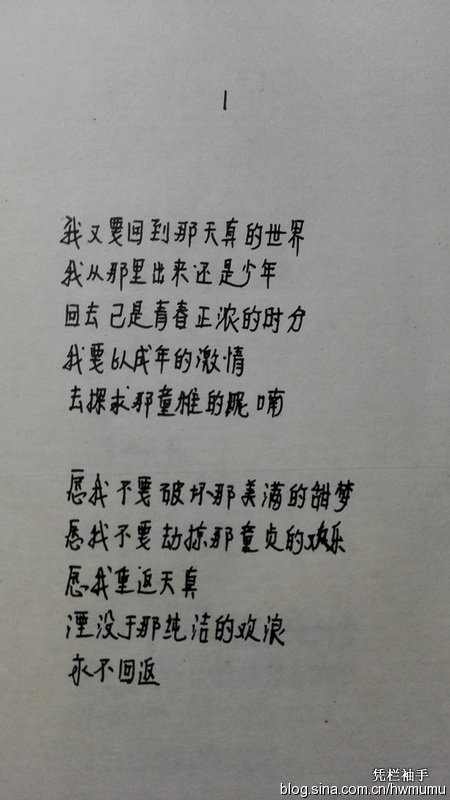 1
我又要回到那天真的世界
我从那里出来还是少年
回去已是青春正浓的时分
我要以成年的激情
去探求那童稚的呢喃
愿我不要破坏那美满的甜梦
愿我不要劫掠那童贞的欢乐
愿我重返天真
湮没于那纯洁的欢浪
永不回返
凭栏袖手
blog.sina.com.cn/hwmumu